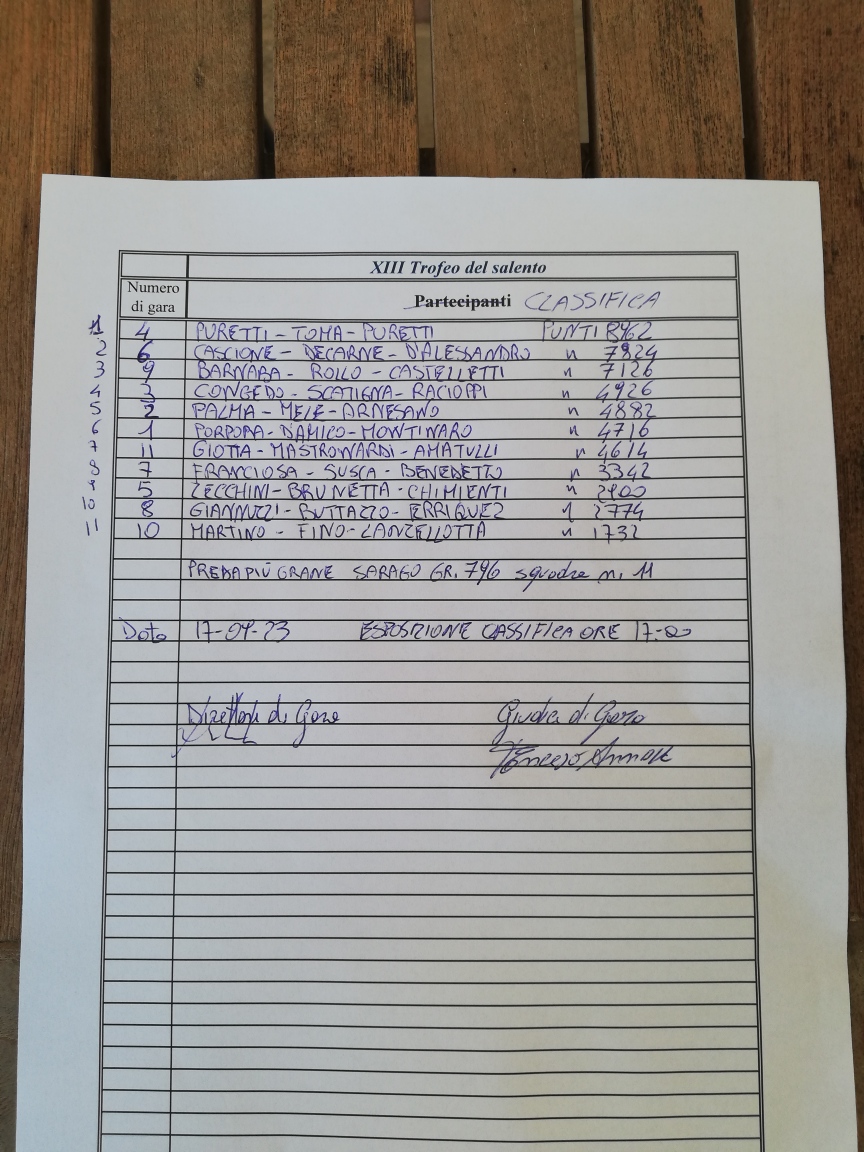 XIII Trofeo del salento
Numero di gara Partecipanti CLASSIFICA
1 4 PURETTI - TOMA - PURETTI PUNTI 8962
2 6 CASCIONE - DECARNE - D'ALESSANDRO " 7824
3 9 BARNABA - ROLLO - CASTELLETTI " 7126
4 3 CONGEDO - SCATIGNA - RACIOPPI " 4926
5 2 PALMA - MELE - ARNESANO " 4882
6 1 PORPORA - D'AMICO - MONTINARO " 4716
7 11 GIOTTA - MASTRONARDI - AMATULLI " 4614
8 7 FRANCIOSA - SUSCA - BENEDETTO " 3342
9 5 ZECCHINI - BRUNETTA - CHIMIENTI "
10 8 GIANNUZZI - BUTTAZZO - ERRIQUEZ " 2774
11 10 MARTINO - FINO - LANZELLOTTA " 1732
PREDA PIÙ GRANE SARAGO GR. 796 squadra n. 11
Data 17-09-23 ESPOSIZIONE CLASSIFICA ORE 17:00
Direttore di Gara Giudice di Gara